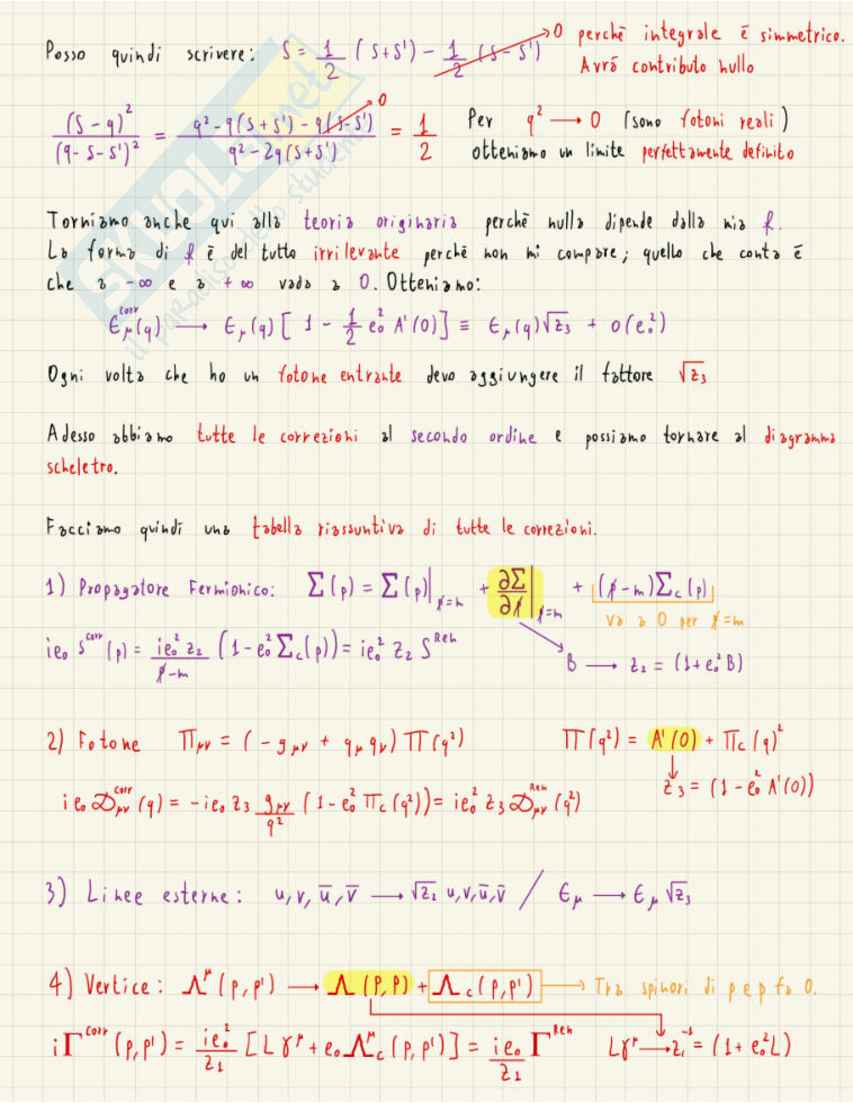 Posso quindi scrivere: S = 1/2 (S+S') - 1/2 (S-S') → 0 perchè integrale è simmetrico.
Avrò contributo nullo
(S-q)² / (q-S-S')² = q² - q(S+S') - q(S-S') → 0 / q² - 2q(S+S') = 1/2 Per q² → 0 (sono fotoni reali)
otteniamo un limite perfettamente definito
Torniamo anche qui alla teoria originaria perchè nulla dipende dalla mia f.
La forma di f è del tutto irrilevante perchè non mi compare; quello che conta è
che a -∞ e a +∞ vada a 0. Otteniamo:
ϵμ^corr(q) → ϵμ(q) [1 - 1/2 e₀² A'(0)] ≡ ϵμ(q)√z₃ + o(e₀²)
Ogni volta che ho un fotone entrante devo aggiungere il fattore √z₃
Adesso abbiamo tutte le correzioni al secondo ordine e possiamo tornare al diagramma
scheletro.
Facciamo quindi una tabella riassuntiva di tutte le correzioni.
1) Propagatore Fermionico: Σ(p) = Σ(p)|_{p̸=m} + ∂Σ/∂p̸|_{p̸=m} + (p̸-m)Σc(p)
va a 0 per p̸=m
ie₀ S^corr(p) = ie₀² z₂/(p̸-m) (1 - e₀² Σc(p)) = ie₀² z₂ S^Ren
B → z₂ = (1+e₀²B)
2) Fotone Πμν = (-gμν + qμqν) Π(q²) Π(q²) = A'(0) + Πc(q)²
z₃ = (1 - e₀² A'(0))
ie₀ 𝒟μν^corr(q) = -ie₀ z₃ gμν/q² (1 - e₀² Πc(q²)) = ie₀² z₃ 𝒟μν^Ren(q²)
3) Linee esterne: u, v, ū, v̄ → √z₂ u, v, ū, v̄ / ϵμ → ϵμ √z₃
4) Vertice: Λ^μ(p,p') → Λ(p,p) + Λc(p,p') → Tra spinori di p e p fa 0.
iΓ^corr(p,p') = ie₀²/z₁ [Lγ^μ + e₀ Λc^μ(p,p')] = ie₀/z₁ Γ^Ren Lγ^μ → z₁⁻¹ = (1+e₀²L)
SKUOLA.net
il paradiso dello studente